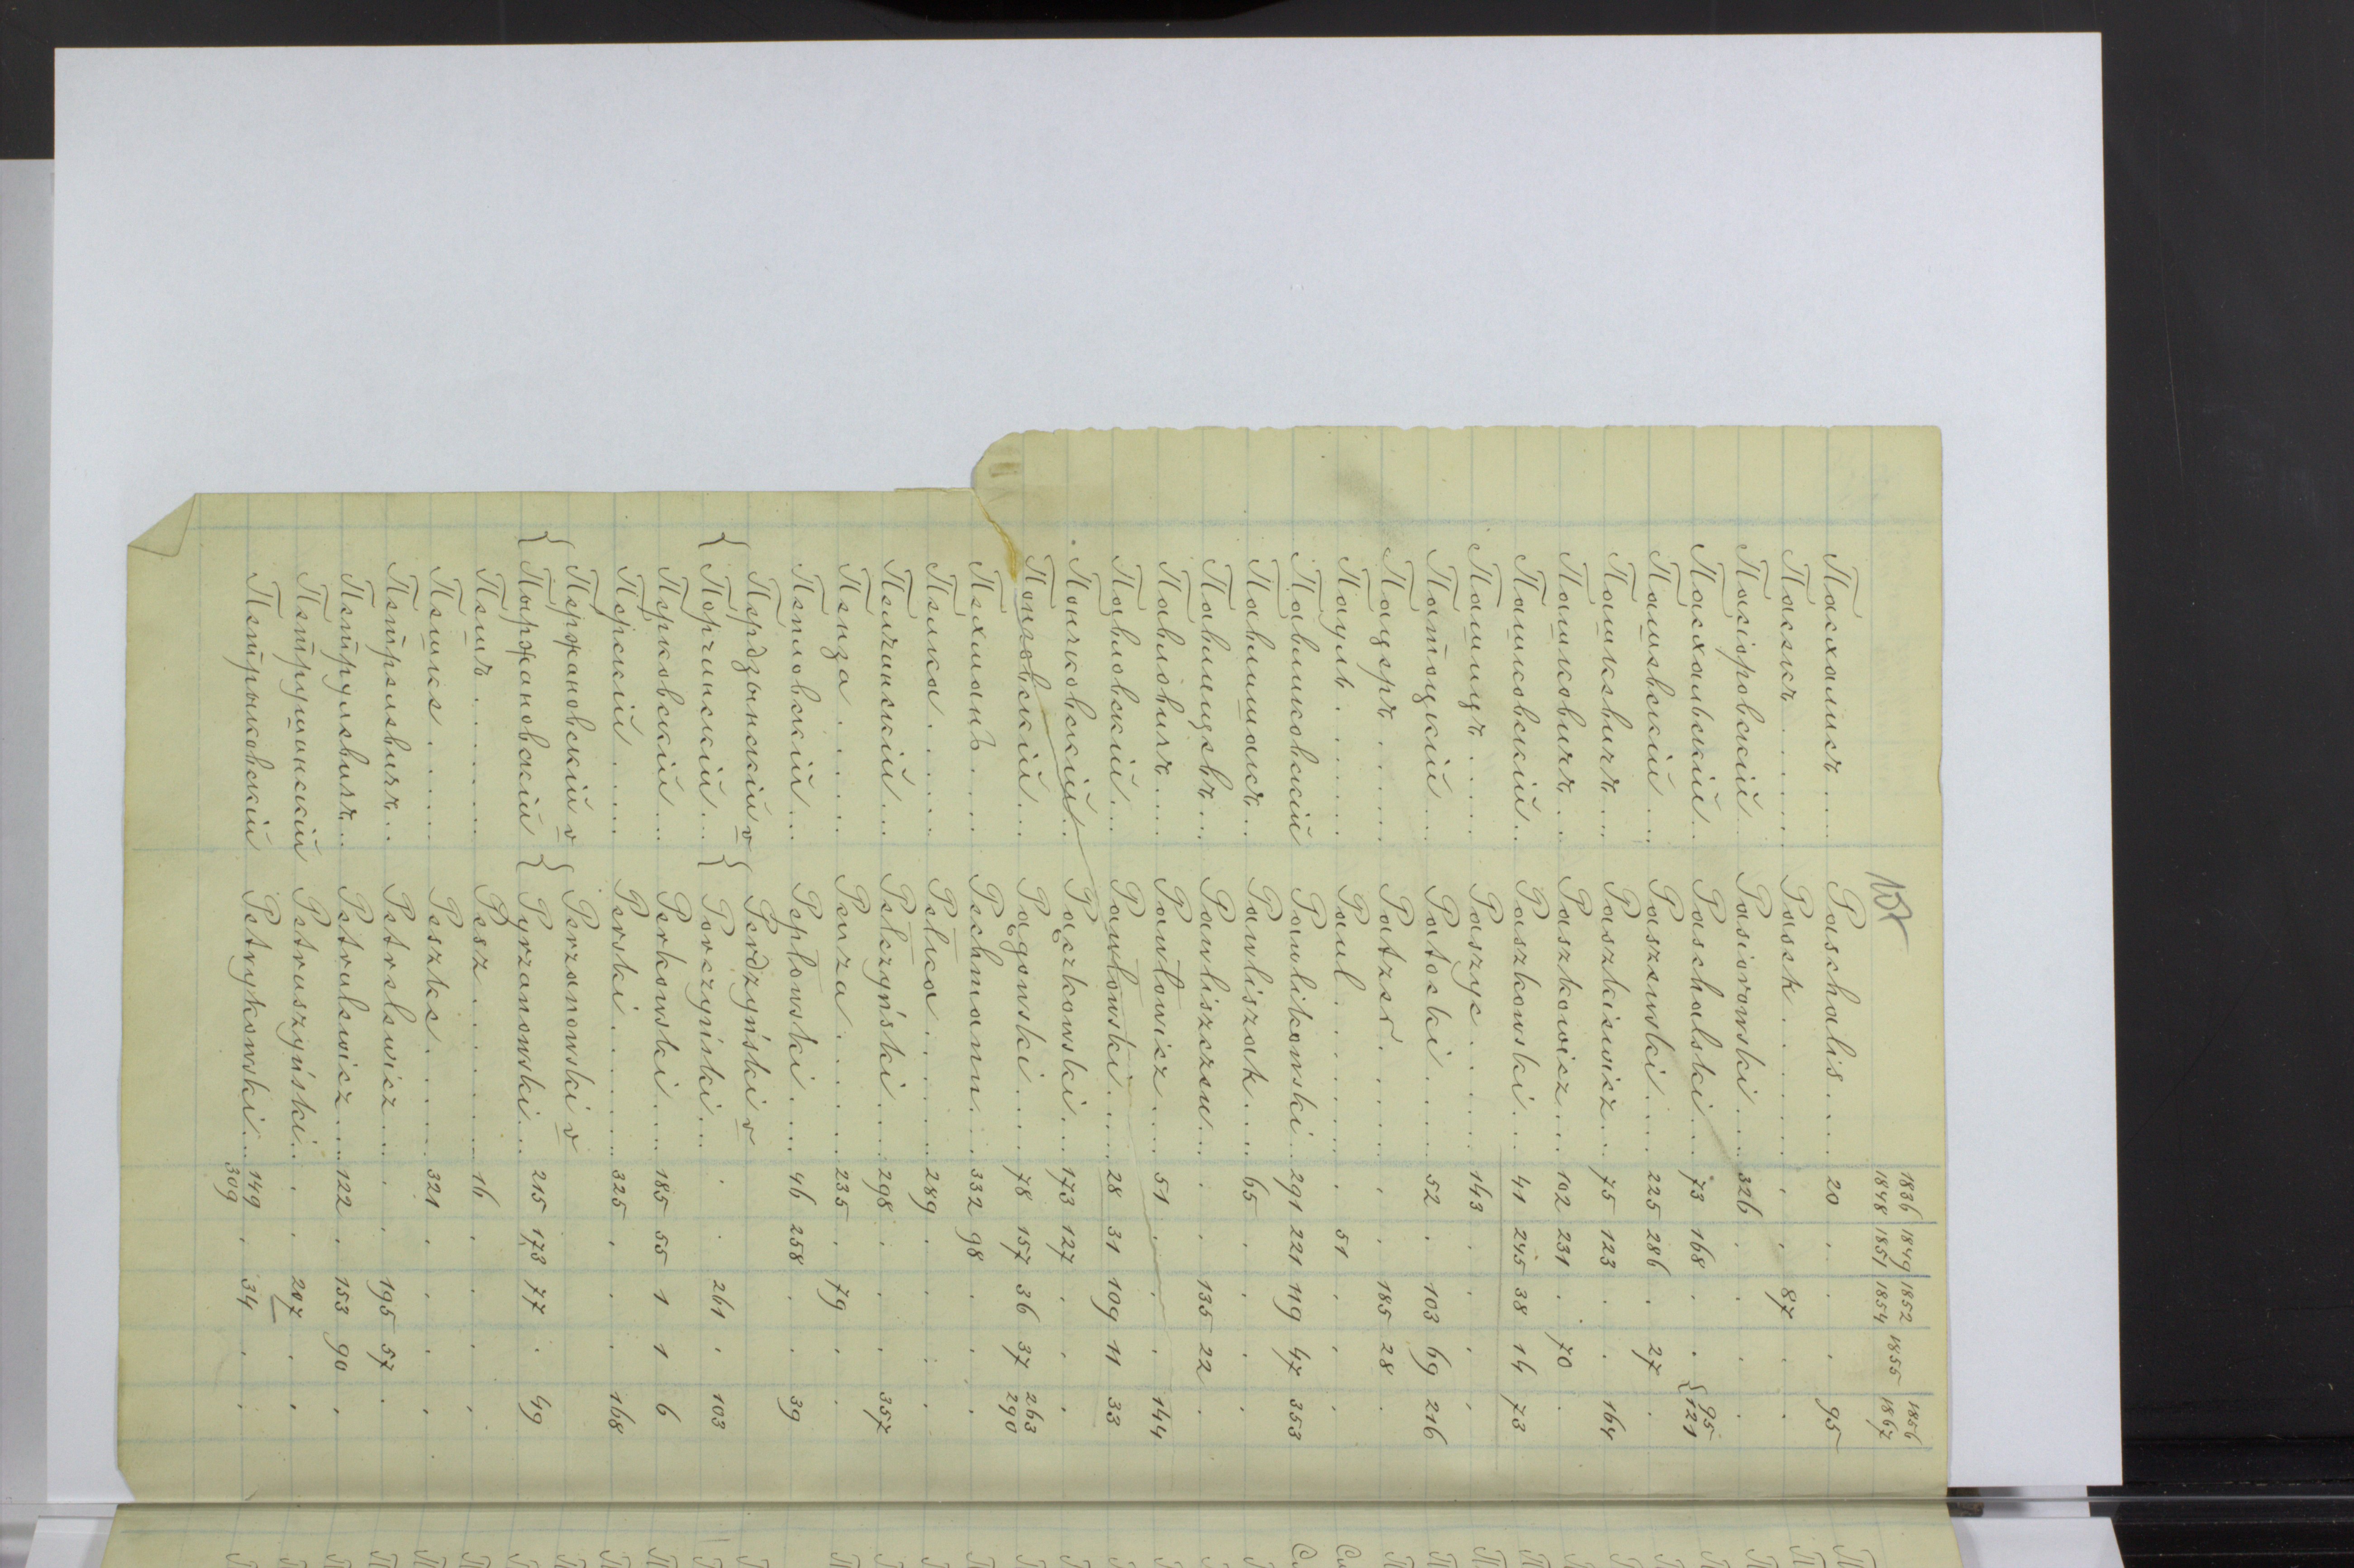 1836 1849 1852 1855 1856
1848 1851 1854 1867
Пасхалисъ.... Paschalis.... 20 . . . 95
Пасекъ...... Pasek...... . . 87 . .
Пасіоровскій... Pasiorowski... 326 . . . .
Пасхальскій.. Paschalski... 73 168 . . {95 121
Пашевскій... Paszewski.... 225 286 . 27 .
Пашкевичъ... Paszkiewicz... 75 123 . . 164
Пашковичъ.. Paszkowicz... 102 231 . 70 .
Пашковскій.. Paszkowski... 41 245 38 14 73
Пашицъ..... Paszyc...... 143 . . . .
Патоцкій... Patocki.... 52 . 103 69 216
Пацеръ..... Patzer..... . . 185 28 .
Пауль...... Paul...... . 51 . . .
Павликовскій Pawlikowski.. 291 221 119 47 353
Павлишакъ.. Pawliszak.... 65 . . . .
Павлищевъ... Pawliszczew... . . 135 22 .
Павловичъ.... Pawłowicz.... 51 . . . 144
Павловскій... Pawłowski.... 28 31 109 11 33
Пачковскій.. Pączkowski... 173 127 . . .
Понговскій... Pągowski.... 78 157 36 37 263 290
Пехманъ.... Pechmann... 332 98 . . .
Пелка...... Pelka...... 289 . . . .
Пелчинскій... Pełczyński.... 298 . . . 357
Пенза...... Penza...... 235 . 79 . .
Пепловскій... Pepłowski.... 46 258 . . 39
Пердзынскій v } Perdzyński v
{ Порчинскій... } Porczyński... . . 261 . 103
Перковскій... Perkowski... 185 55 1 1 6
Перскій.... Perski...... 325 . . . 168
Пержановскій v } Perzanowski v
{ Пыржановскій } Pyrzanowski... 215 173 77 . 49
Пешъ....... Pesz....... 16 . . . .
Пешке...... Peszke...... 321 . . . .
Петрелевичъ.. Petrelewicz... . . 195 57 .
Петрулевичъ.. Petrulewicz... 122 . 153 90 .
Петрушинскій Petruszyński... . . 207 . .
Петрыковскій Petrykowski... 149 309 . 34 . .